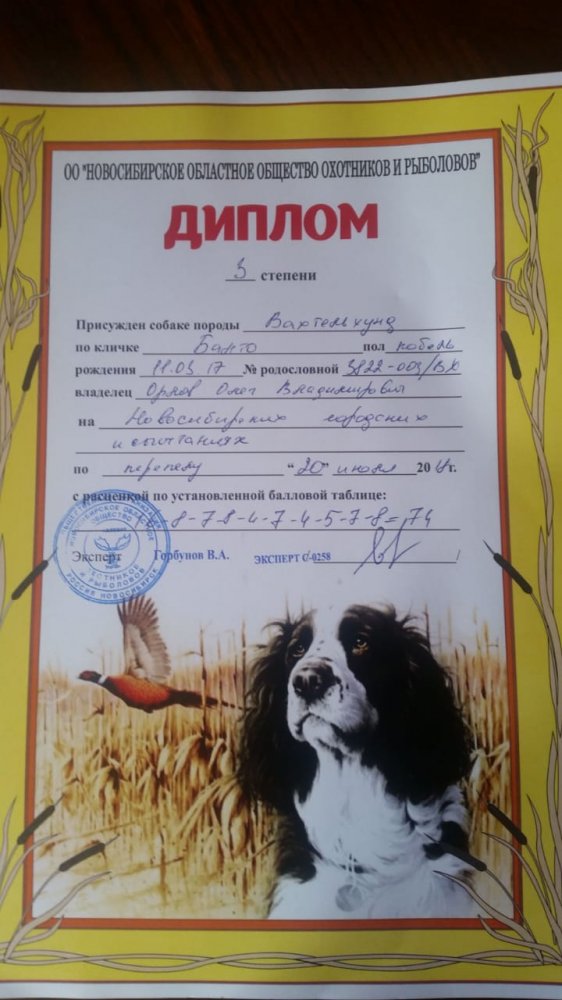 ОО "НОВОСИБИРСКОЕ ОБЛАСТНОЕ ОБЩЕСТВО ОХОТНИКОВ И РЫБОЛОВОВ"
ДИПЛОМ
3 степени
Присужден собаке породы Вахтельхунд
по кличке Банто пол кобель
рождения 11.03.17 № родословной 3822-003/ВХ
владелец Орлов Олег Владимирович
на Новосибирских городских
испытаниях
по перепелу "20" июля 20 г.
с расценкой по установленной балловой таблице:
8-7-8-4-7-4-5-7-8=74
Эксперт Горбунов В.А. ЭКСПЕРТ С-0258 /
НОВОСИБИРСКОЕ ОБЛАСТНОЕ
ОБЩЕСТВО
ОХОТНИКОВ
И РЫБОЛОВОВ
РОССИЯ НОВОСИБИРСК